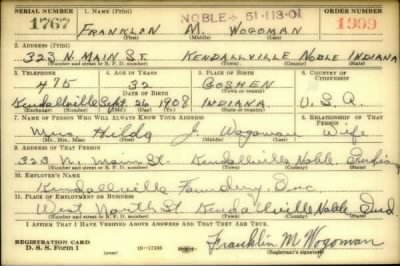 SERIAL NUMBER 1. NAME (Print) NOBLE - 51-113-01 ORDER NUMBER
1767 FRANKLAN M. WOGOMAN 1909
(First) (Middle) (Last)
2. ADDRESS (Print)
323 N. MAIN ST. KENDALLVILLE NOBLE INDIANA
(Number and street or R. F. D. number) (Town) (County) (State)
3. TELEPHONE 4. AGE IN YEARS 5. PLACE OF BIRTH 6. COUNTRY OF CITIZENSHIP
475 32 GOSHEN
DATE OF BIRTH (Town or county)
Kendallville Sept. 26 1908 INDIANA U. S. A.
(Exchange) (Mo.) (Day) (Yr.) (State or country)
7. NAME OF PERSON WHO WILL ALWAYS KNOW YOUR ADDRESS 8. RELATIONSHIP OF THAT PERSON
Mrs Hilda J. Wogoman Wife
(Mr., Mrs., Miss) (First) (Middle) (Last)
9. ADDRESS OF THAT PERSON
323 N. Main St. Kendallville Noble, Indiana
(Number and street or R. F. D. number) (Town) (County) (State)
10. EMPLOYER'S NAME
Kendallville Foundery, Inc.
11. PLACE OF EMPLOYMENT OR BUSINESS
West North St. Kendallville Noble Ind.
(Number and street or R. F. D. number) (Town) (County) (State)
I AFFIRM THAT I HAVE VERIFIED ABOVE ANSWERS AND THAT THEY ARE TRUE.
REGISTRATION CARD
D. S. S. Form 1 16-17386 Franklin M Wogoman
(Registrant's signature)